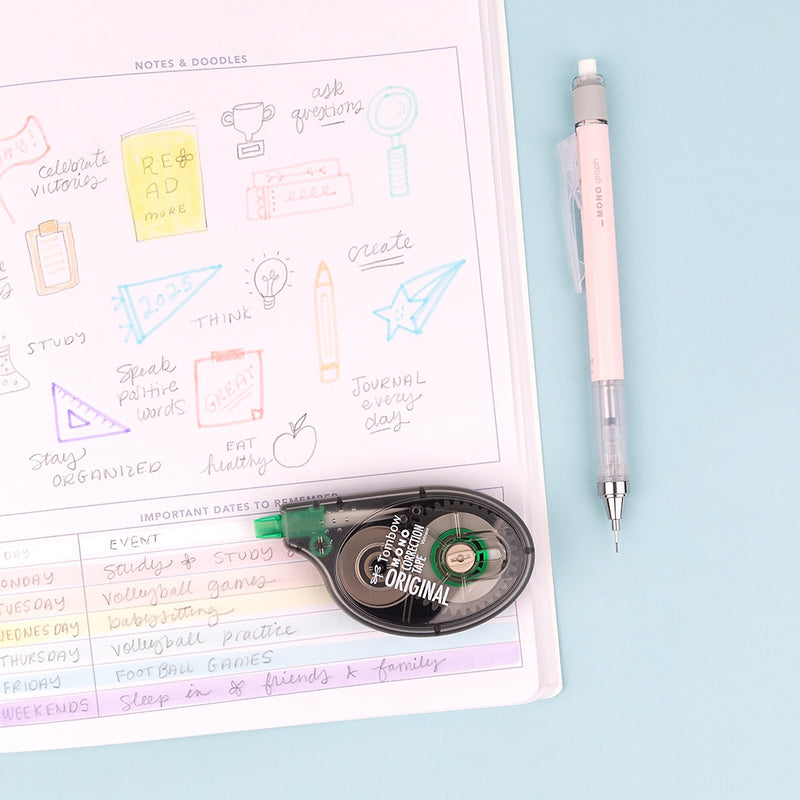 NOTES & DOODLES
ask
questions
celebrate
victories
READ
MORE
create
2025
THINK
STUDY
Speak
positive
words
GREAT
JOURNAL
every
day
Stay
ORGANIZED
EAT
healthy
IMPORTANT DATES TO REMEMBER
DAY EVENT
Study STUDY
TUESDAY volleyball games
WEDNESDAY babysitting
THURSDAY volleyball practice
FRIDAY FOOTBALL GAMES
WEEKENDS Sleep in friends & family
Tombow
MONO
CORRECTION
TAPE
ORIGINAL
MONO graph